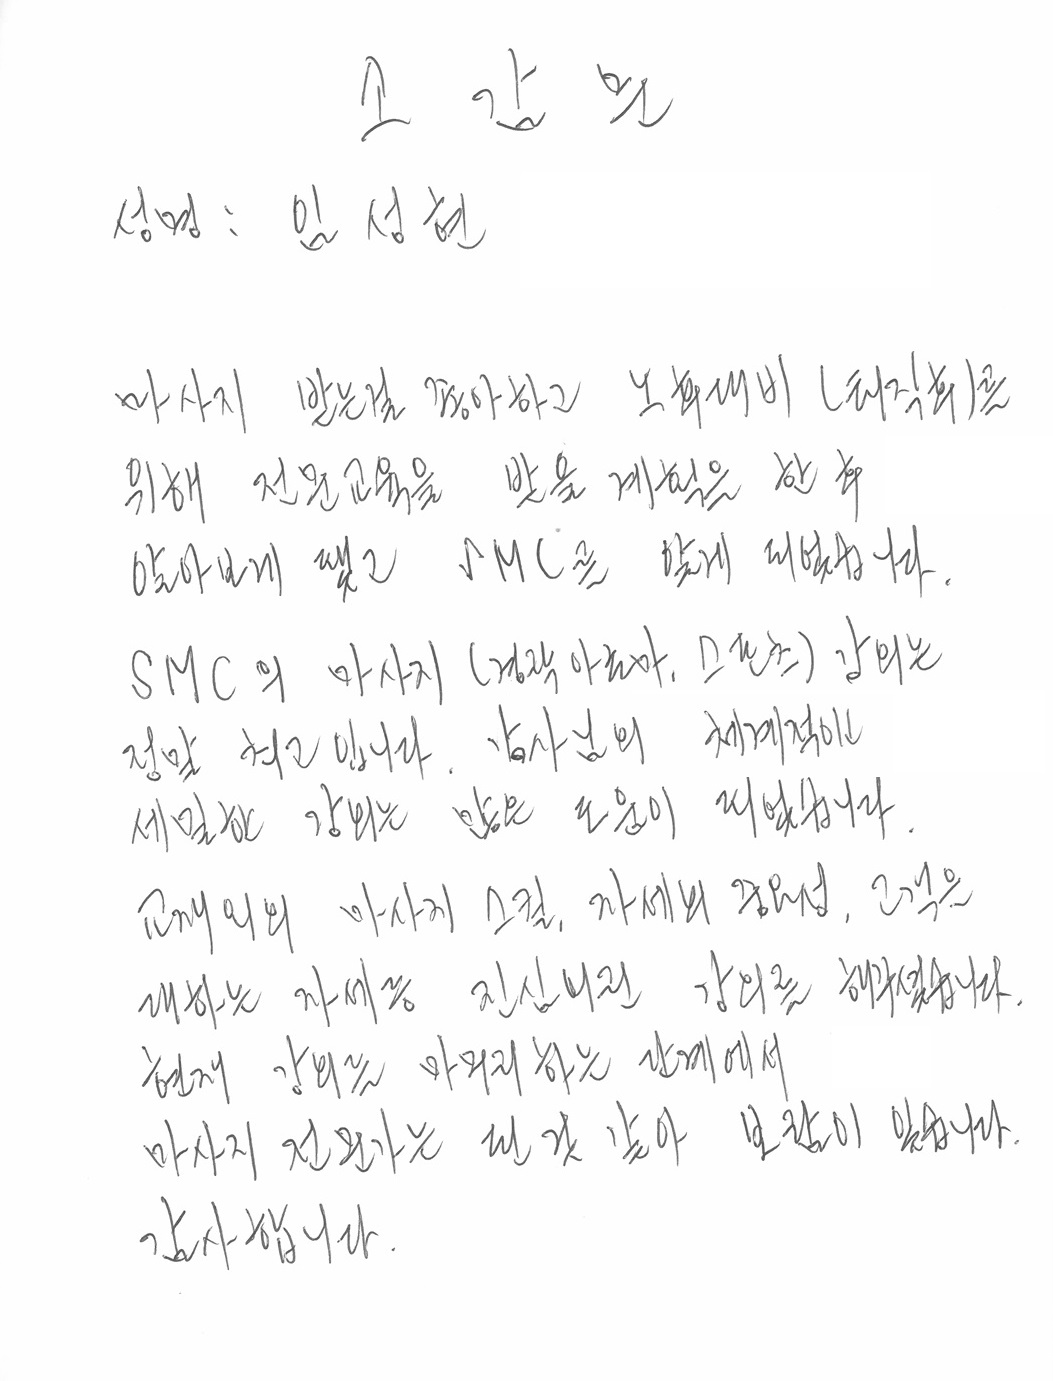 소 감 문
성명: 임성현
마사지 받는걸 좋아하고 노후대비 (퇴직후)를
위해 전문교육을 받을 계획을 한 후
알아보게 됐고 SMC를 알게 되었습니다.
SMC의 마사지 (경락아로마, 스포츠) 강의는
정말 최고입니다. 강사님의 체계적이고
세밀한 강의는 많은 도움이 되었습니다.
교재외의 마사지 스킬, 자세의 중요성, 고객을
대하는 자세등 진심어린 강의를 해주셨습니다.
현재 강의를 마무리하는 단계에서
마사지 전문가는 된 것 같아 보람이 있습니다.
감사합니다.